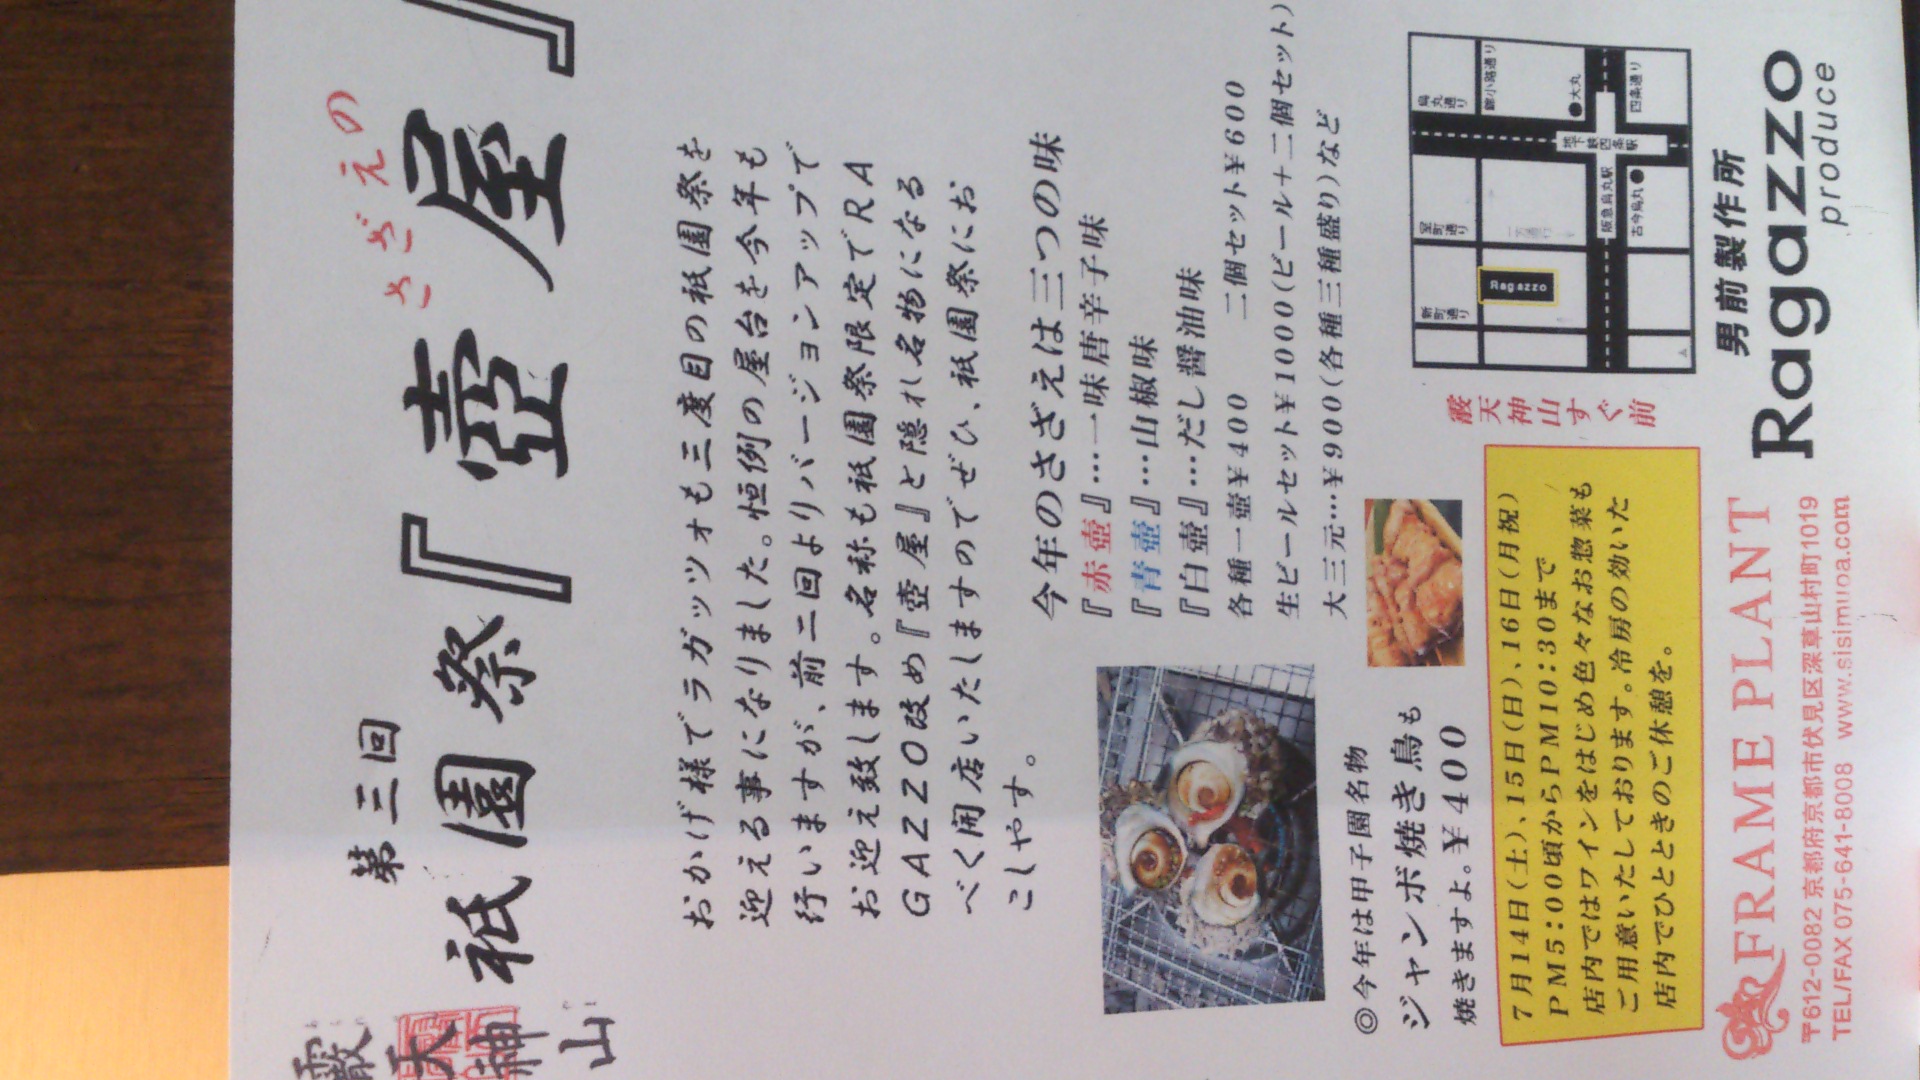 霰
天
神
山
第三回
さざえの
祇園祭『壺屋』
おかげ様でラガッツォも三度目の祇園祭を
迎える事になりました。恒例の屋台を今年も
行いますが、前二回よりバージョンアップで
お迎え致します。名称も祇園祭限定でRA
GAZZO改め『壺屋』と隠れ名物になる
べく開店いたしますのでぜひ、祇園祭にお
こしやす。
今年のさざえは三つの味
『赤壺』…一味唐辛子味
『青壺』…山椒味
『白壺』…だし醤油味
各種一壺¥400 二個セット¥600
生ビールセット¥1000(ビール+二個セット)
大三元…¥900(各種三種盛り)など
◎今年は甲子園名物
ジャンボ焼き鳥も
焼きますよ。¥400
7月14日(土)、15日(日)、16日(月祝)
PM5:00頃からPM10:30まで
店内ではワインをはじめ色々なお惣菜も
ご用意いたしております。冷房の効いた
店内でひとときのご休憩を。
霰天神山すぐ前
新町通り
室町通り
烏丸通り
錦小路通り
Ragazzo
阪急烏丸駅
地下鉄四条駅
大丸
古今烏丸
四条通り
男前製作所
Ragazzo
produce
FRAME PLANT
〒612-0082 京都府京都市伏見区深草山村町1019
TEL/FAX 075-641-8008 www.sisimuoa.com